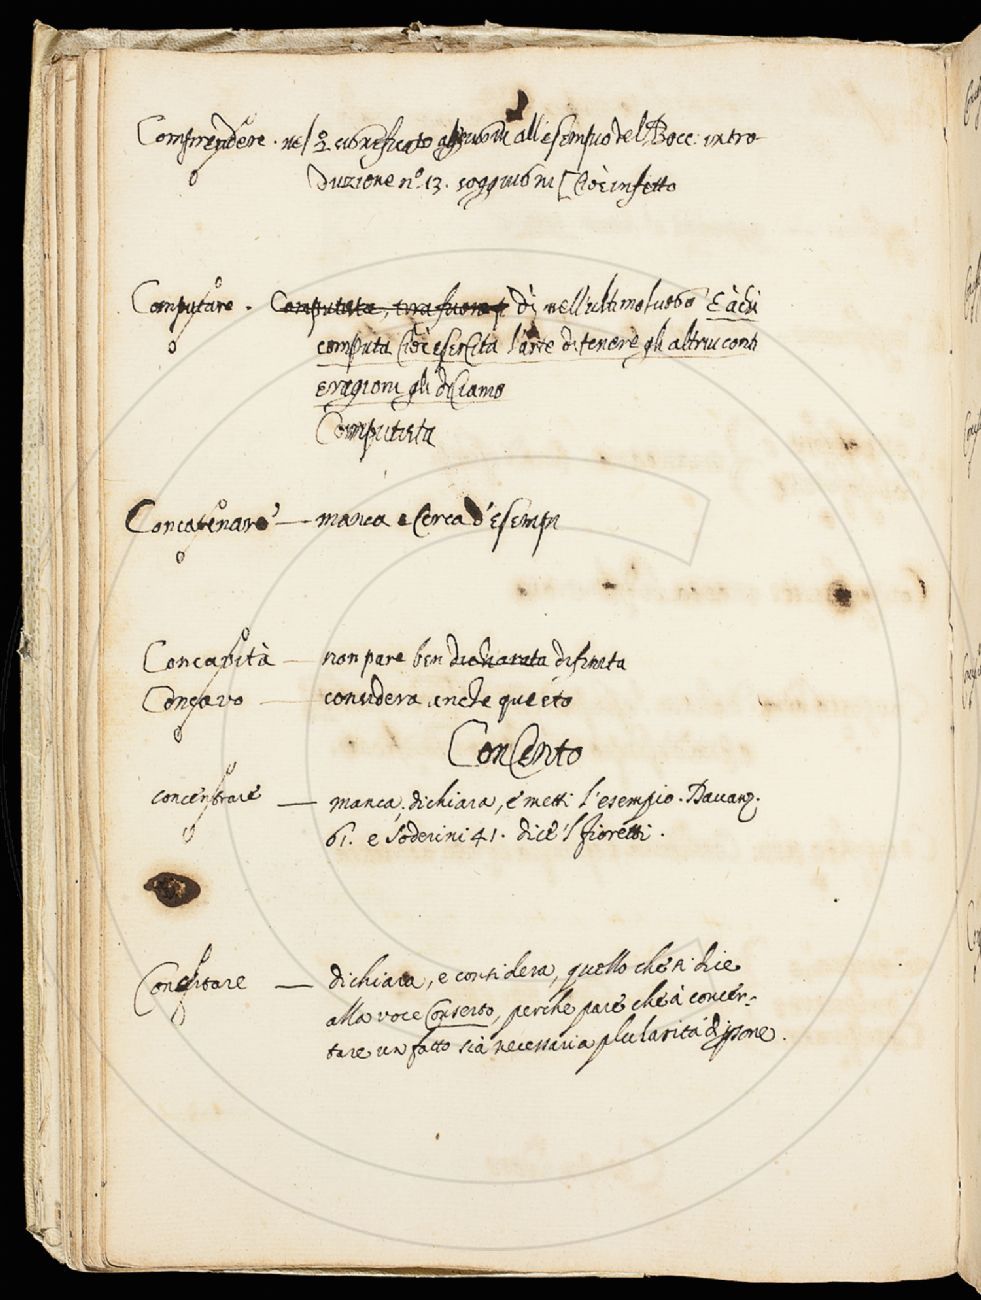 Comprendere. nel 2.° significato aggiugni all'esempio del Bocc. intro
duzione n.° 13. soggiugni Cioè infetto
Computare. Computista, tira fuora p Di nell'ultimo luogo E à chi
computa Cioè esercita l'arte di tenere gli altrui conti
e ragioni gli diciamo
Computista
Concatenare — manca e cerca d'esempi
Concavità — non pare ben dichiarata difinita
Concavo — considera anche questo
Concento
concentrare — manca, dichiara, e metti l'esempio. Davanz.
61. e Soderini 41. dice 'l fioretti.
Concertare — dichiara, e considera, quello che si dice
alla voce Conserto, perche pare che à concer-
tare un fatto sia necessaria plularità di psone.